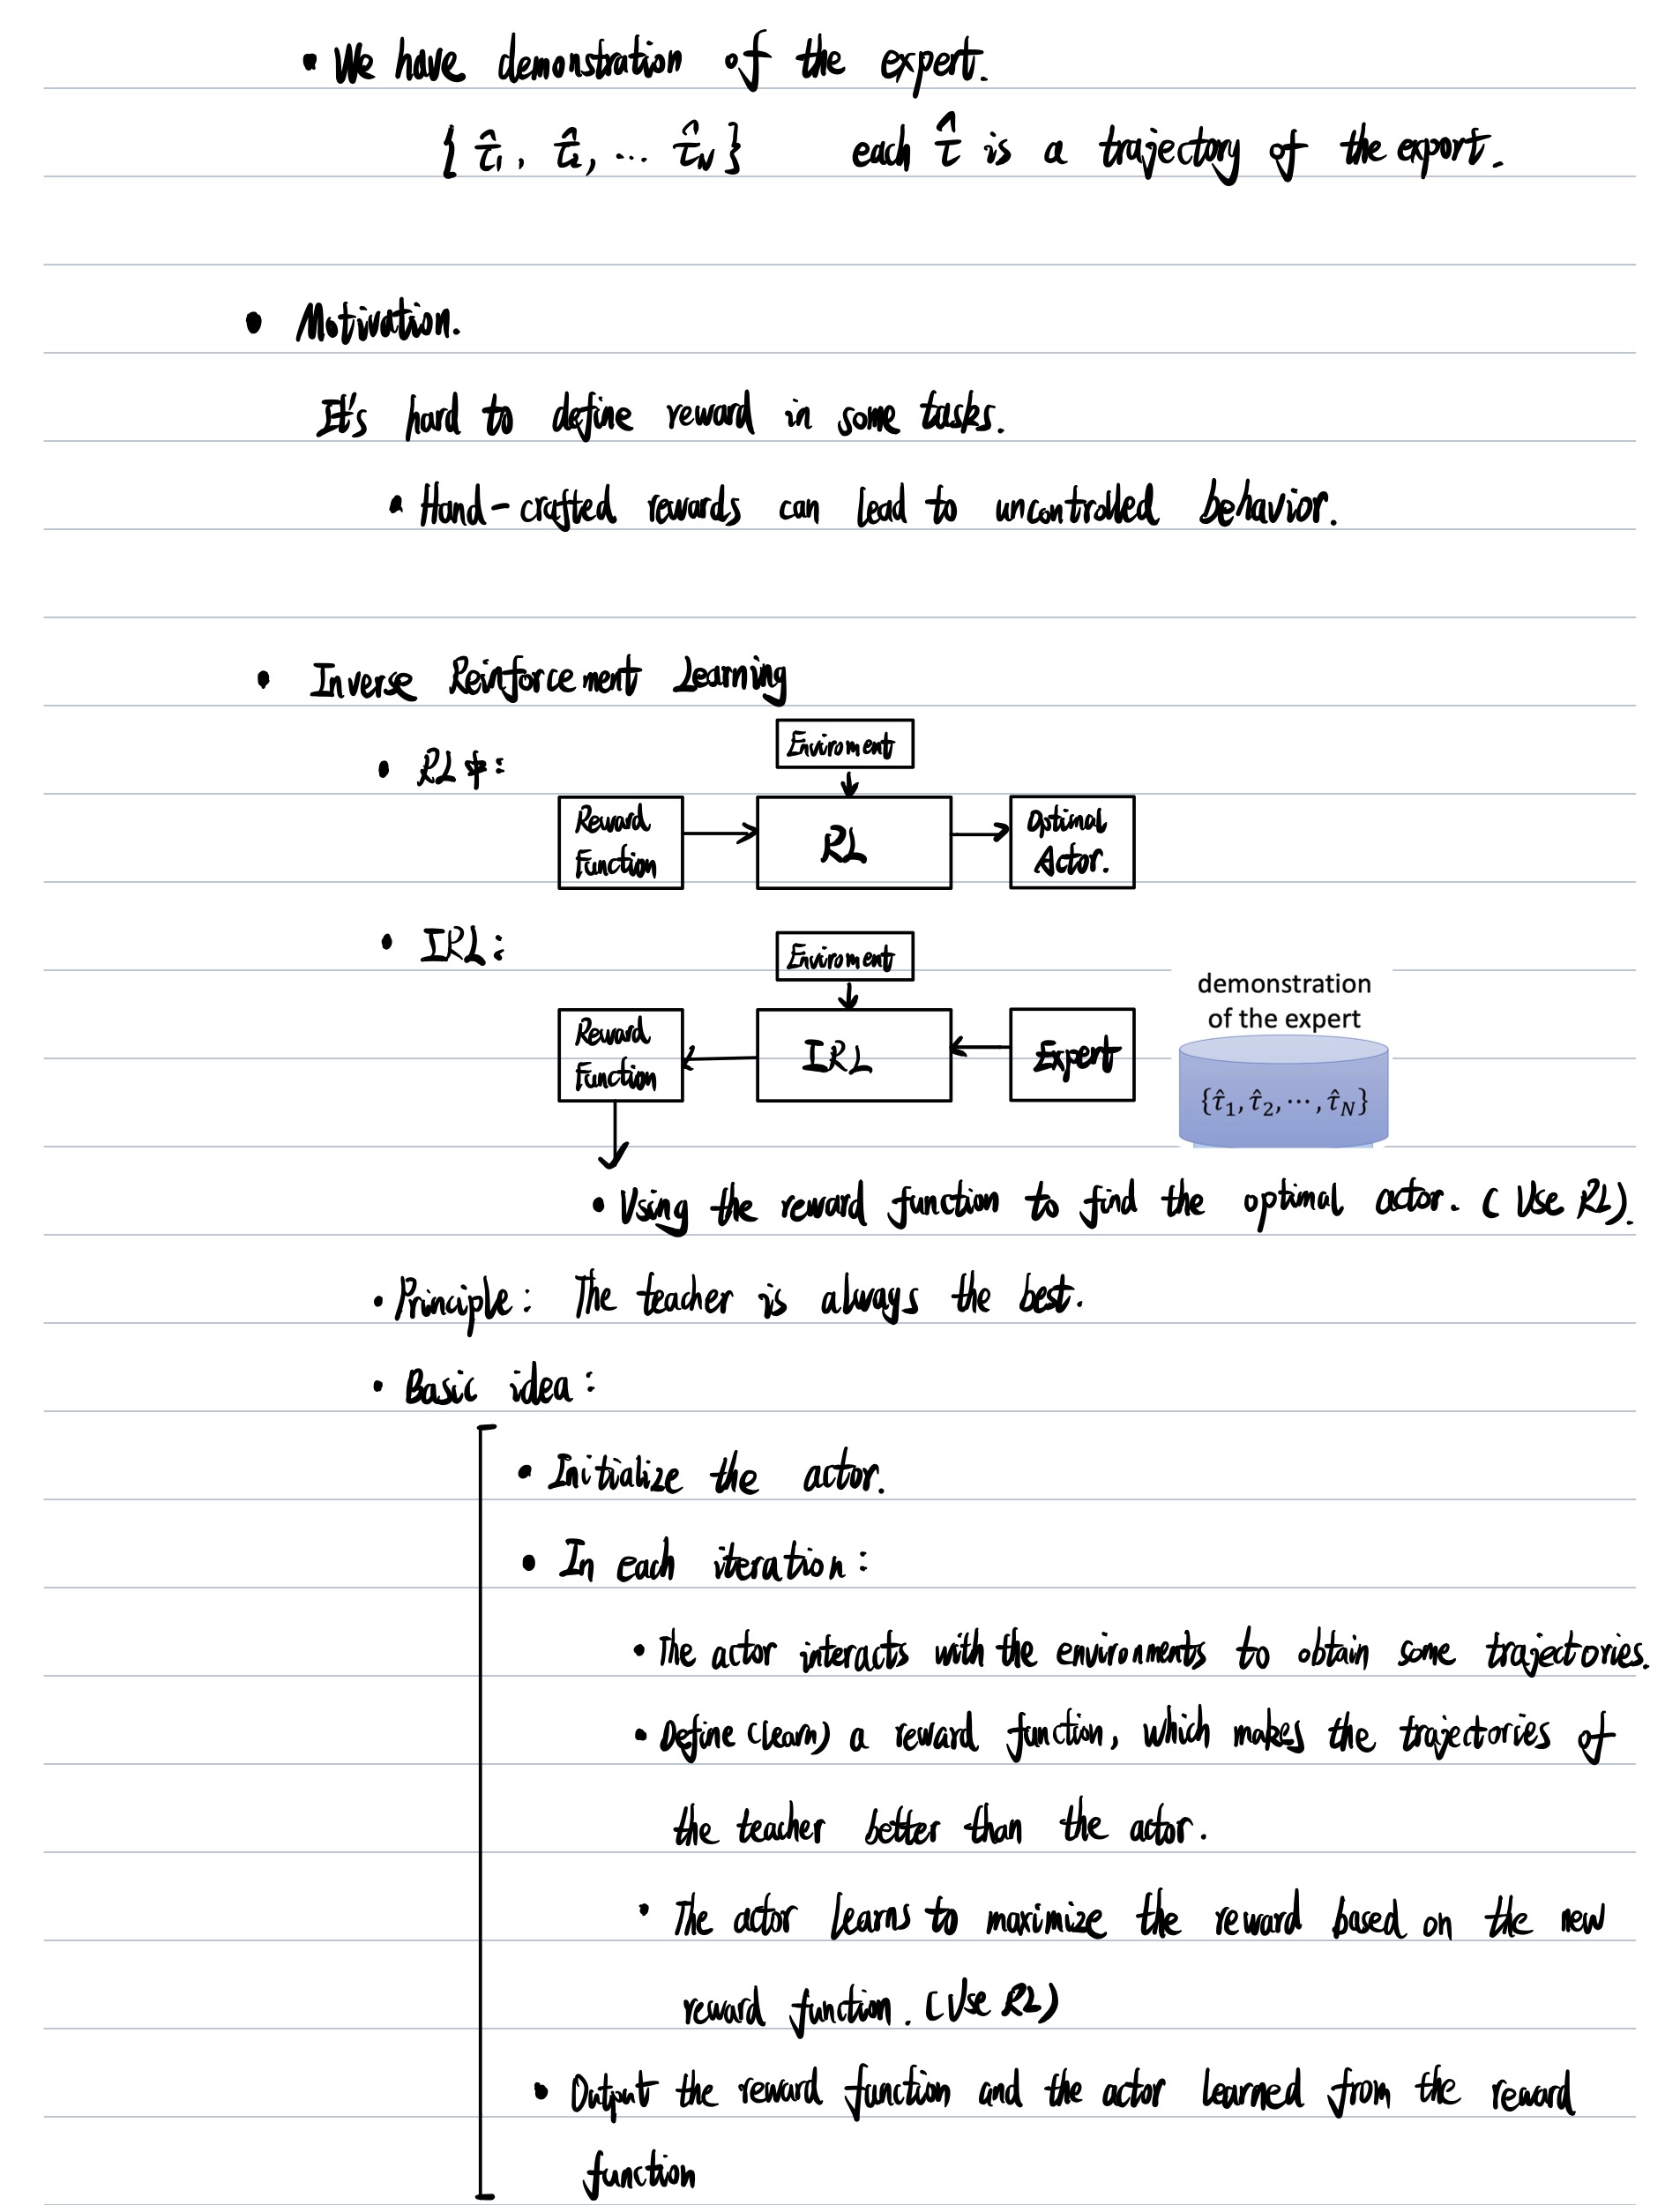 • We have demonstration of the expert.
{ τ̂₁, τ̂₂, ... τ̂N } each τ̂ is a trajectory of the export.
• Motivation.
It's hard to define reward in some tasks.
• Hand-crafted rewards can lead to uncontrolled behavior.
• Inverse Reinforcement Learning
• RL中:
Enviroment
Reward
Function
RL
Optimal
Actor.
• IRL:
Enviroment
Reward
Function
IRL
Expert
demonstration
of the expert
{τ̂₁, τ̂₂, ⋯, τ̂N}
• Using the reward function to find the optimal actor. (Use RL).
• Principle: The teacher is always the best.
• Basic idea:
• Initialize the actor.
• In each iteration:
• The actor interacts with the environments to obtain some trajectories.
• Define (learn) a reward function, which makes the trajectories of
the teacher better than the actor.
• The actor learns to maximize the reward based on the new
reward function. (Use RL)
• Output the reward function and the actor learned from the reward
function